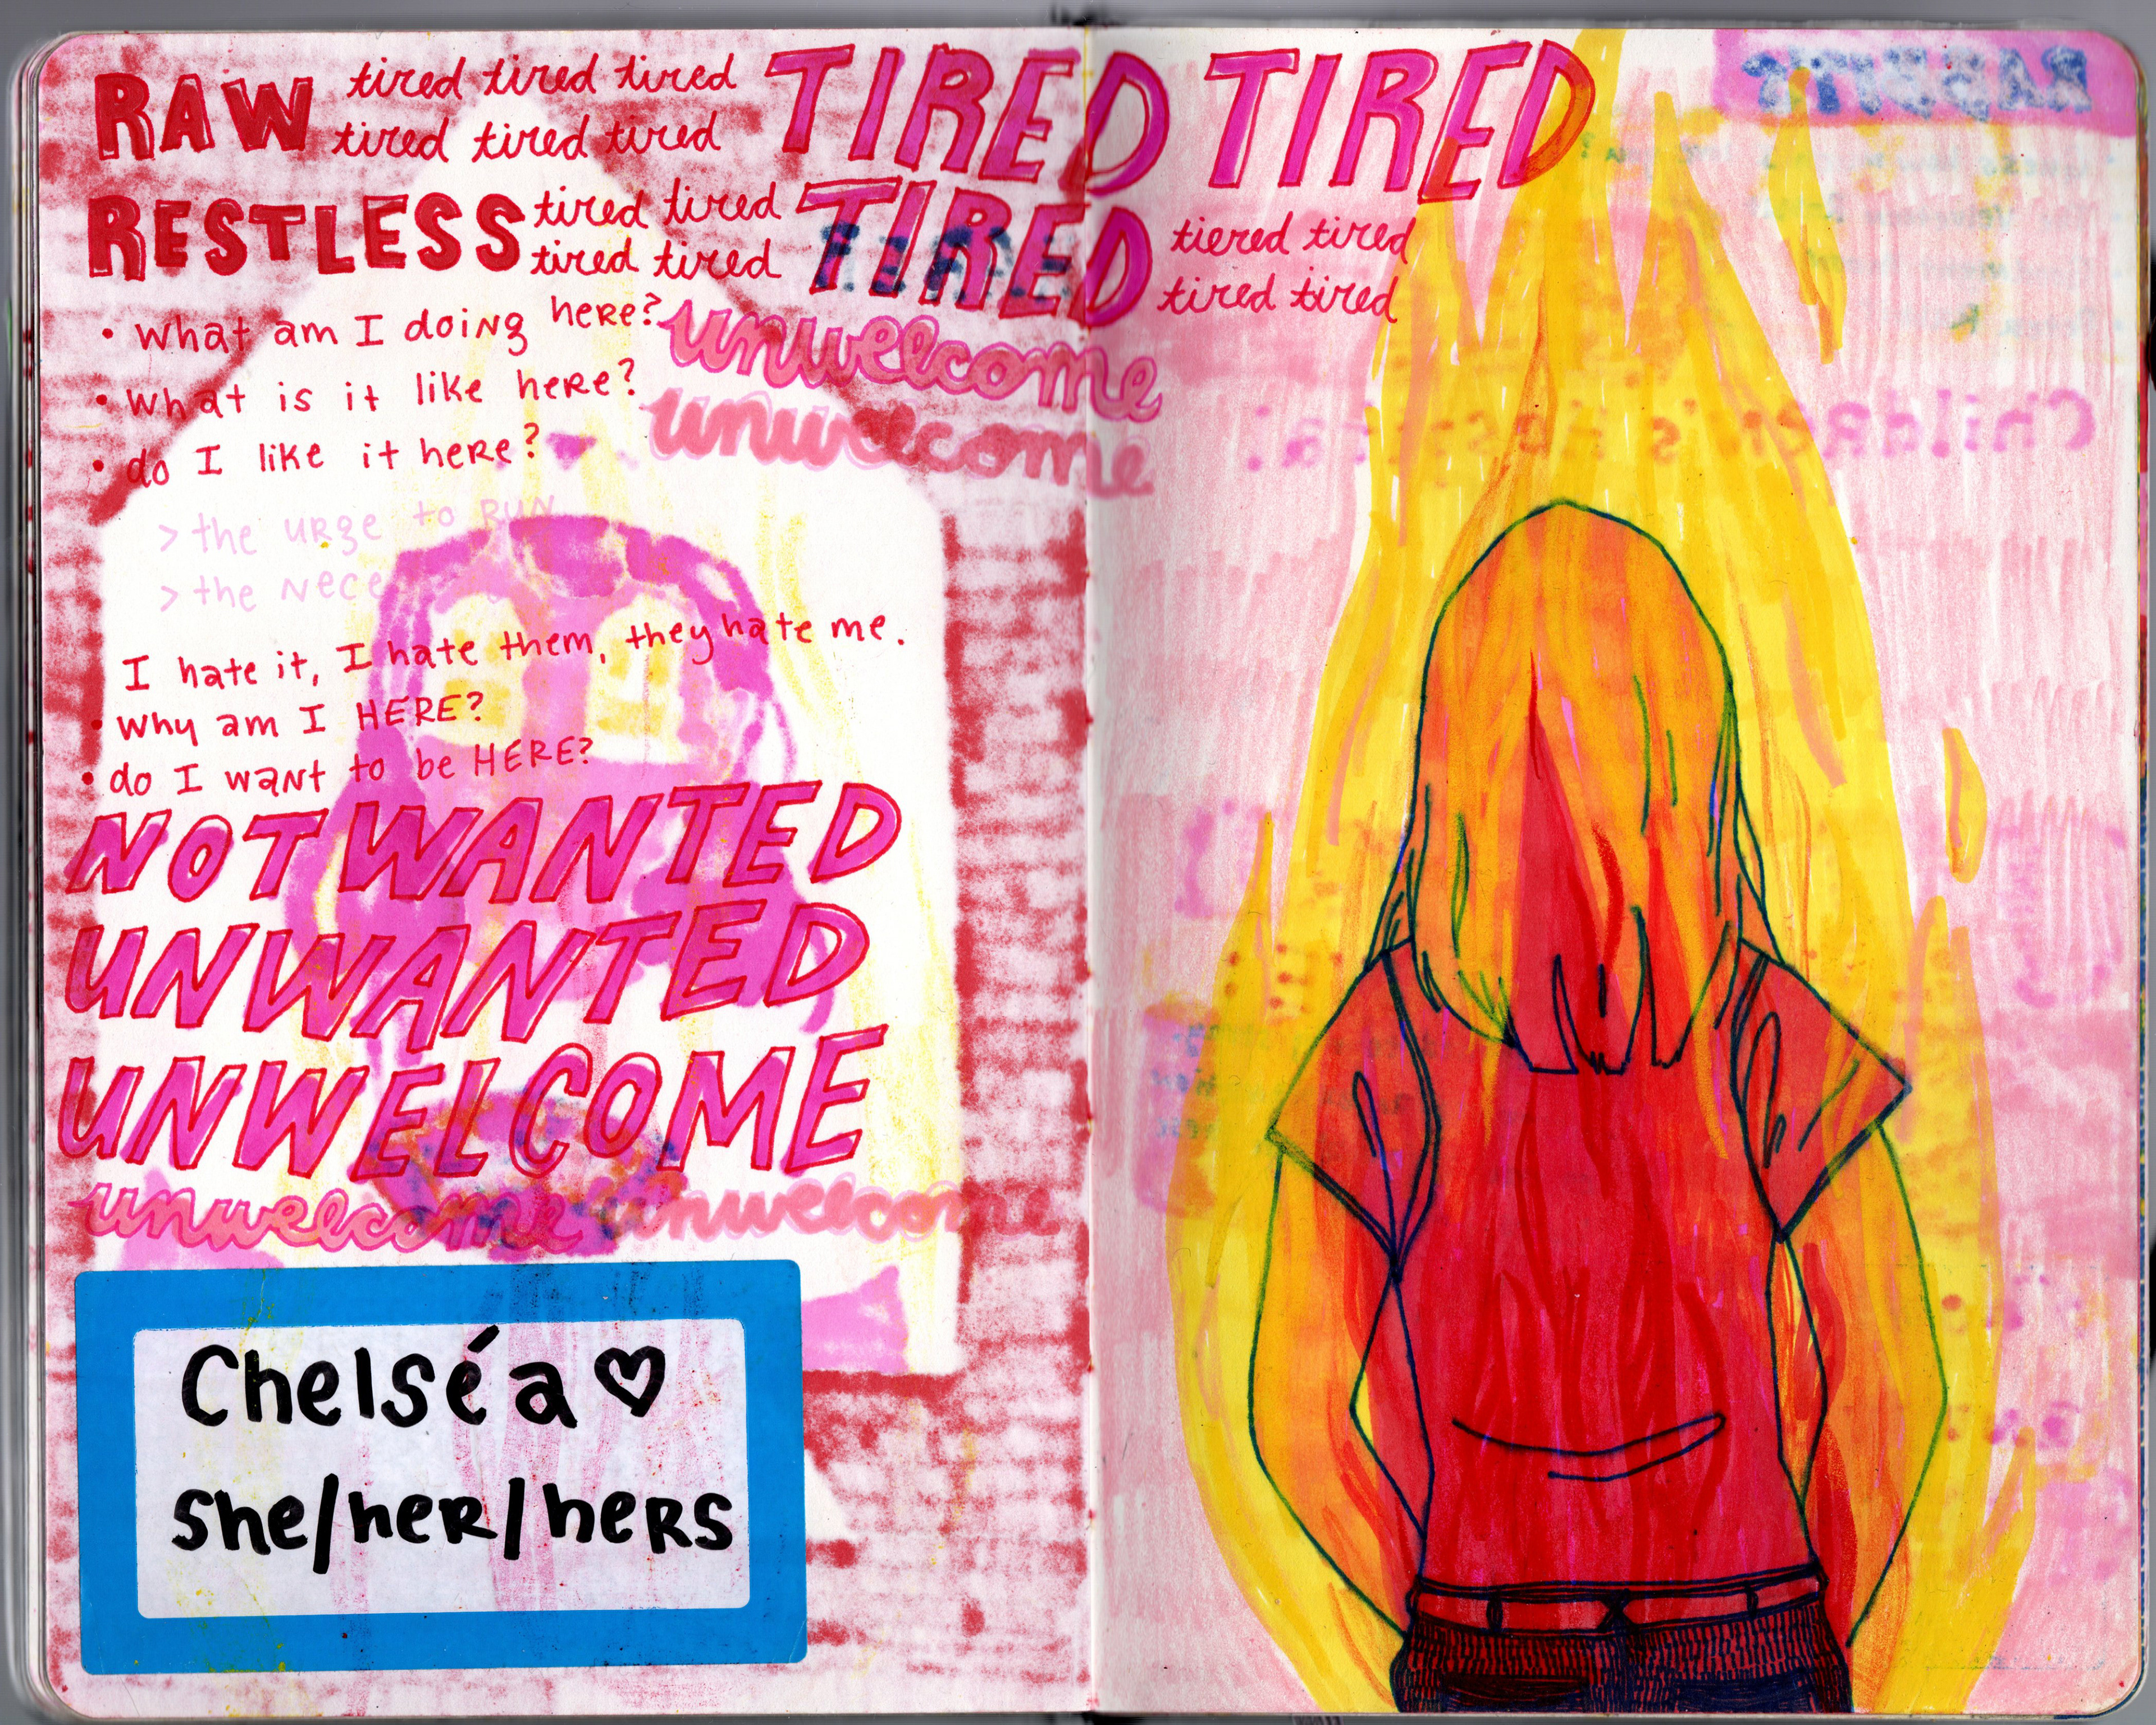 RAW tired tired tired TIRED TIRED
tired tired tired
RESTLESS tired tired TIRED tiered tired
tired tired tired tired
• what am I doing here?
unwelcome
• what is it like here?
unwelcome
• do I like it here?
> the urge to RUN
> the Nece
I hate it, I hate them, they hate me.
• why am I HERE?
• do I want to be HERE?
NOT WANTED
UNWANTED
UNWELCOME
unwelcome unwelcome
Chelséa ♡
she/her/hers